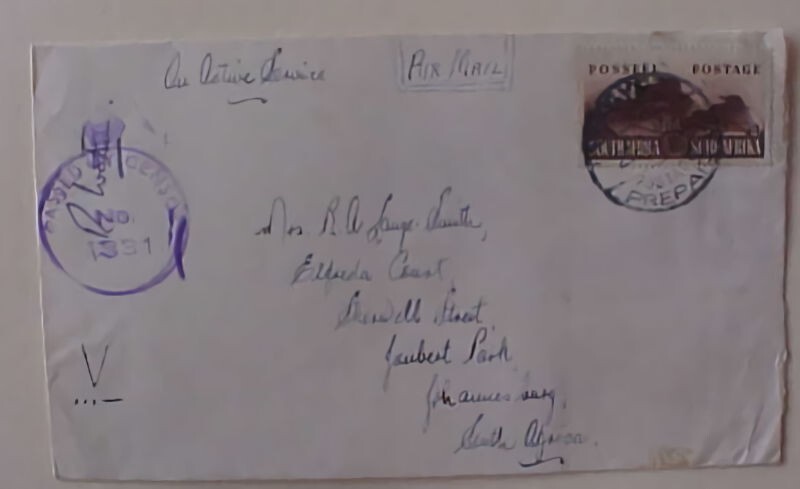 On Active Service
AIR MAIL
POSSEEL POSTAGE
SOUTH AFRICA SUID-AFRIKA
POSTAGE
PREPAID
PASSED CENSOR
No.
1331
Mrs. R. A. Lange-Smith,
Elfreda Court,
Street,
Joubert Park
Johannesburg,
South Africa.
V
...—